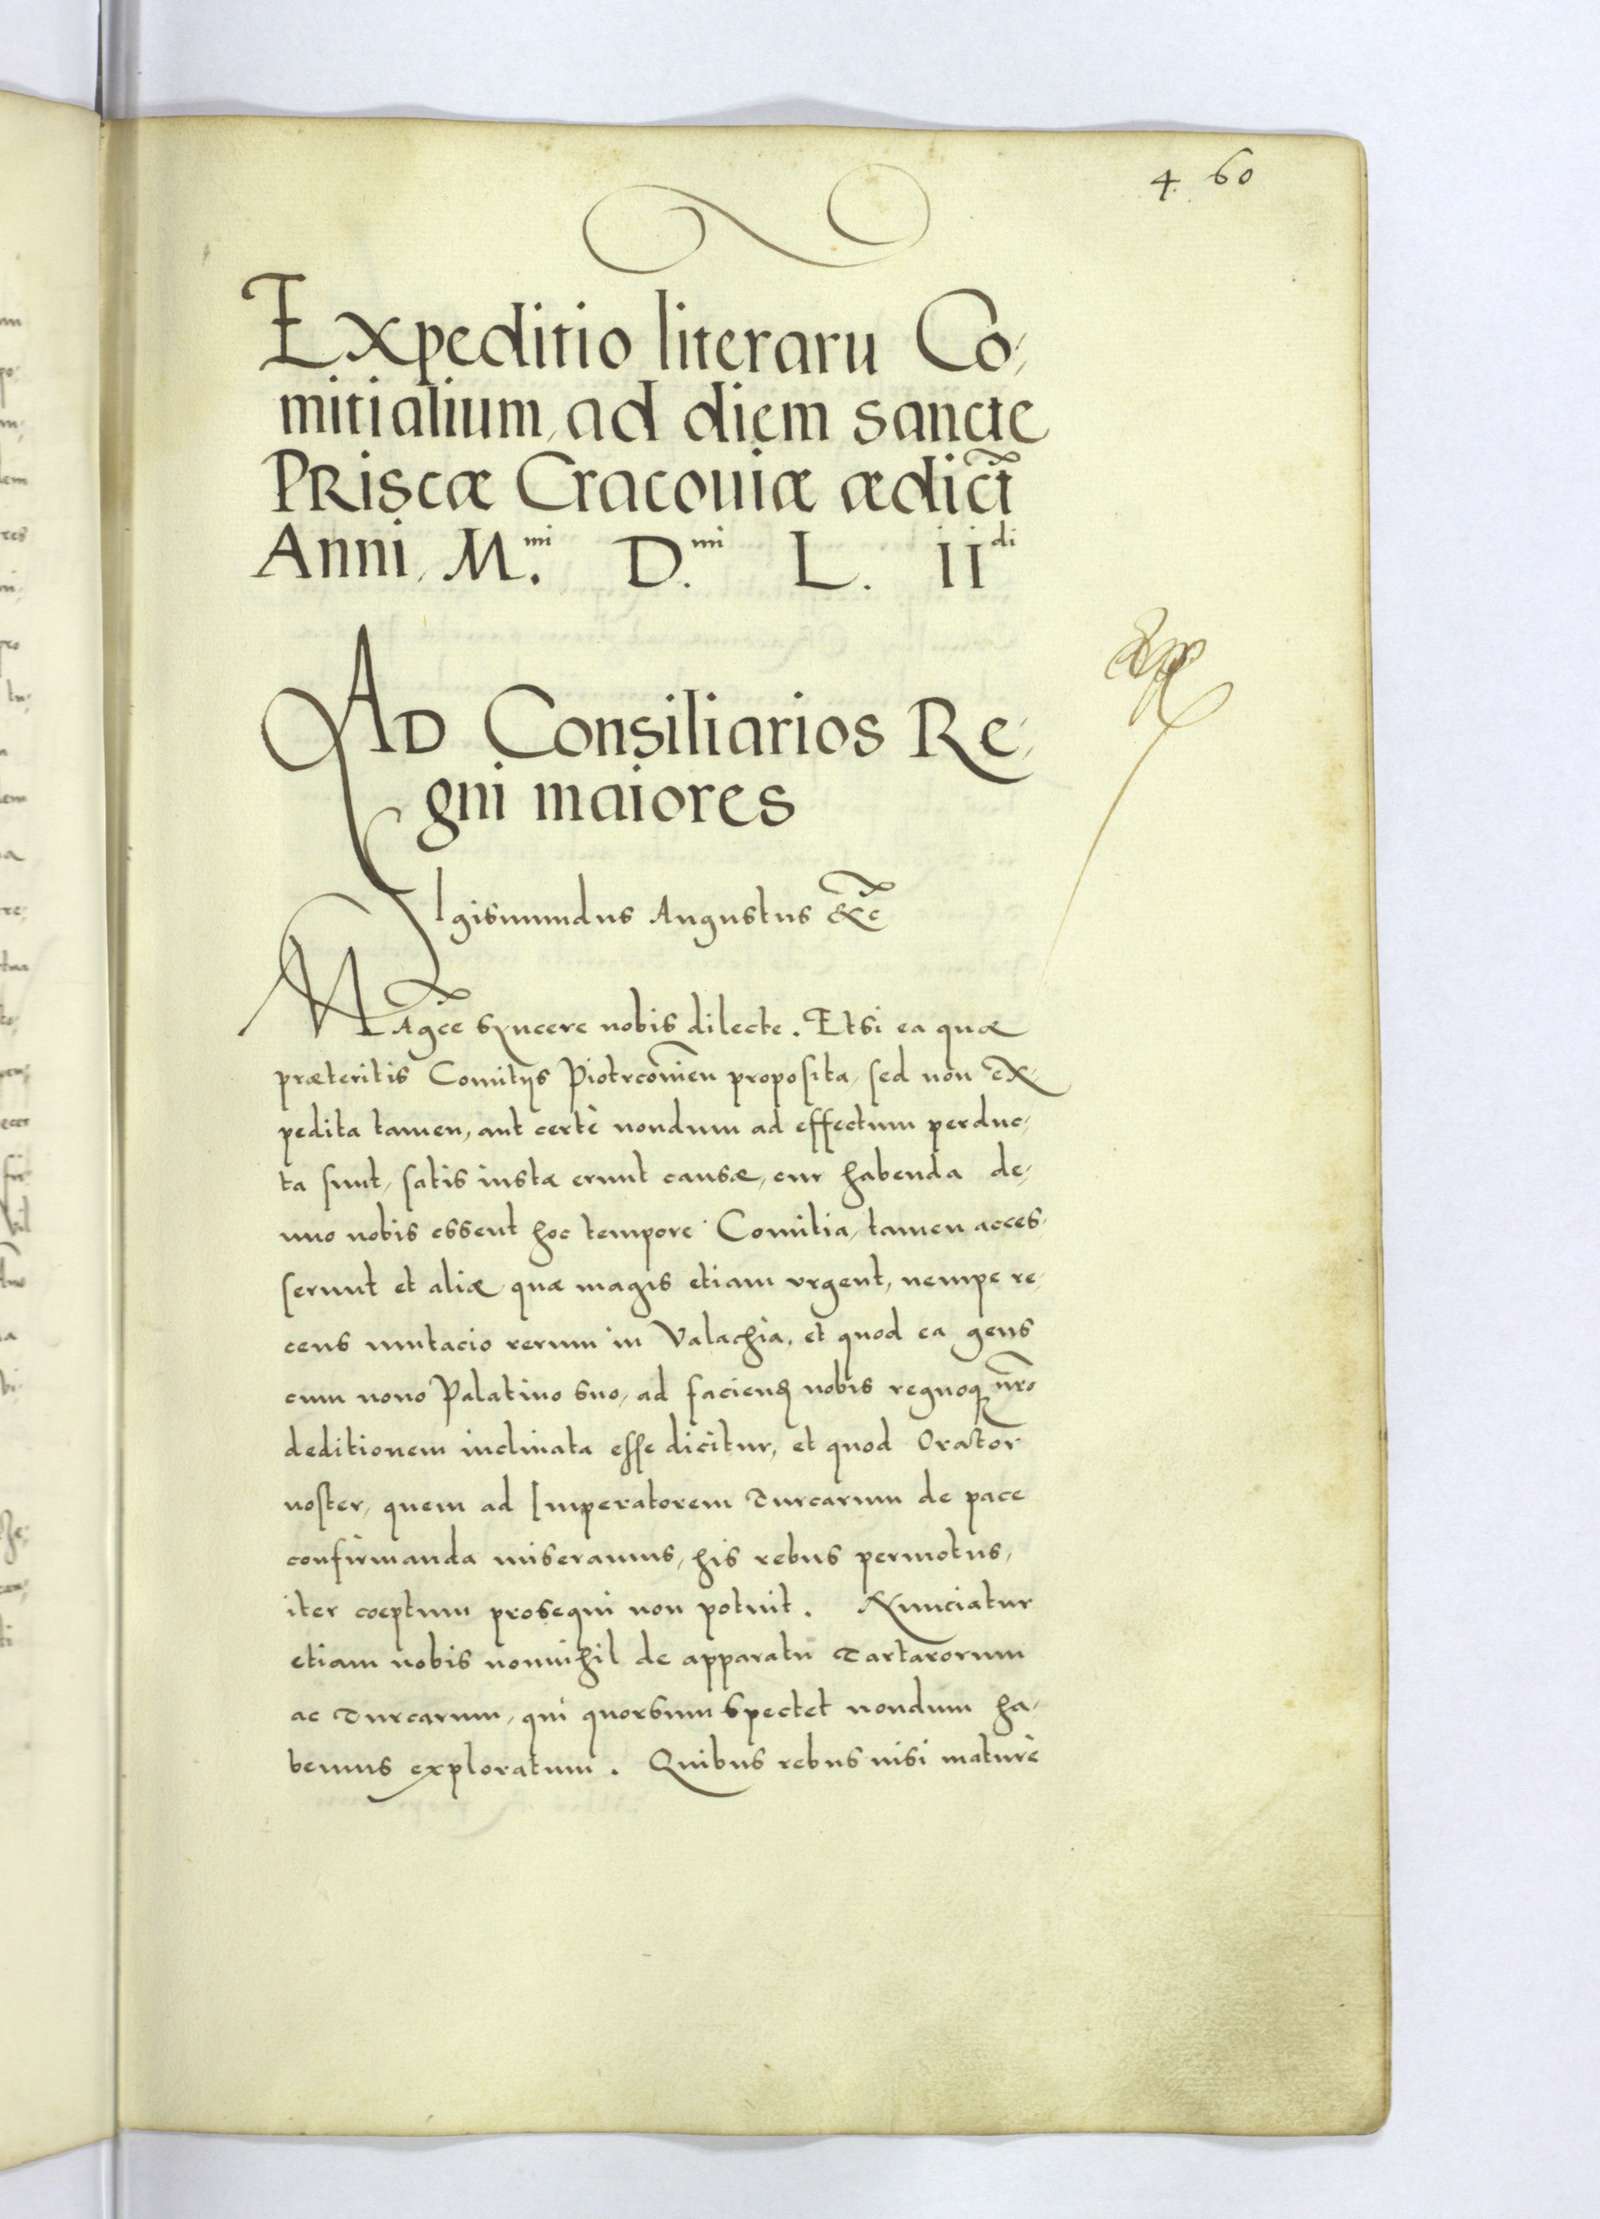 4. 60
Expeditio literaru Co,
mitialium, ad diem sancte
PRiscæ Cracouiæ ædict
Anni, M.mi D.mi L. IIdi
AD Consiliarios Re,
gni maiores
SIgismundus Augustus &c
MAgce syncere nobis dilecte. Etsi ea quæ
præteritis Comitijs Piotrconien proposita, sed non ex,
pedita tamen, aut certè nondum ad effectum perduc,
ta sunt, satis iustæ erunt causæ, cur habenda de,
nuo nobis essent hoc tempore Comitia, tamen acces,
serunt et aliæ quæ magis etiam vrgent, nempe re,
cens mutacio rerum in Valachia, et quod ea gens
cum nouo Palatino suo, ad faciend nobis regnoq nro
deditionem inclinata esse dicitur, et quod Orator
noster, quem ad Imperatorem Turcarum de pace
confirmanda miseramus, his rebus permotus,
iter coeptum prosequi non potuit. Nunciatur
etiam nobis nonnihil de apparatu Tartarorum
ac Turcarum, qui quorsum spectet nondum ha,
bemus exploratum. Quibus rebus nisi maturè